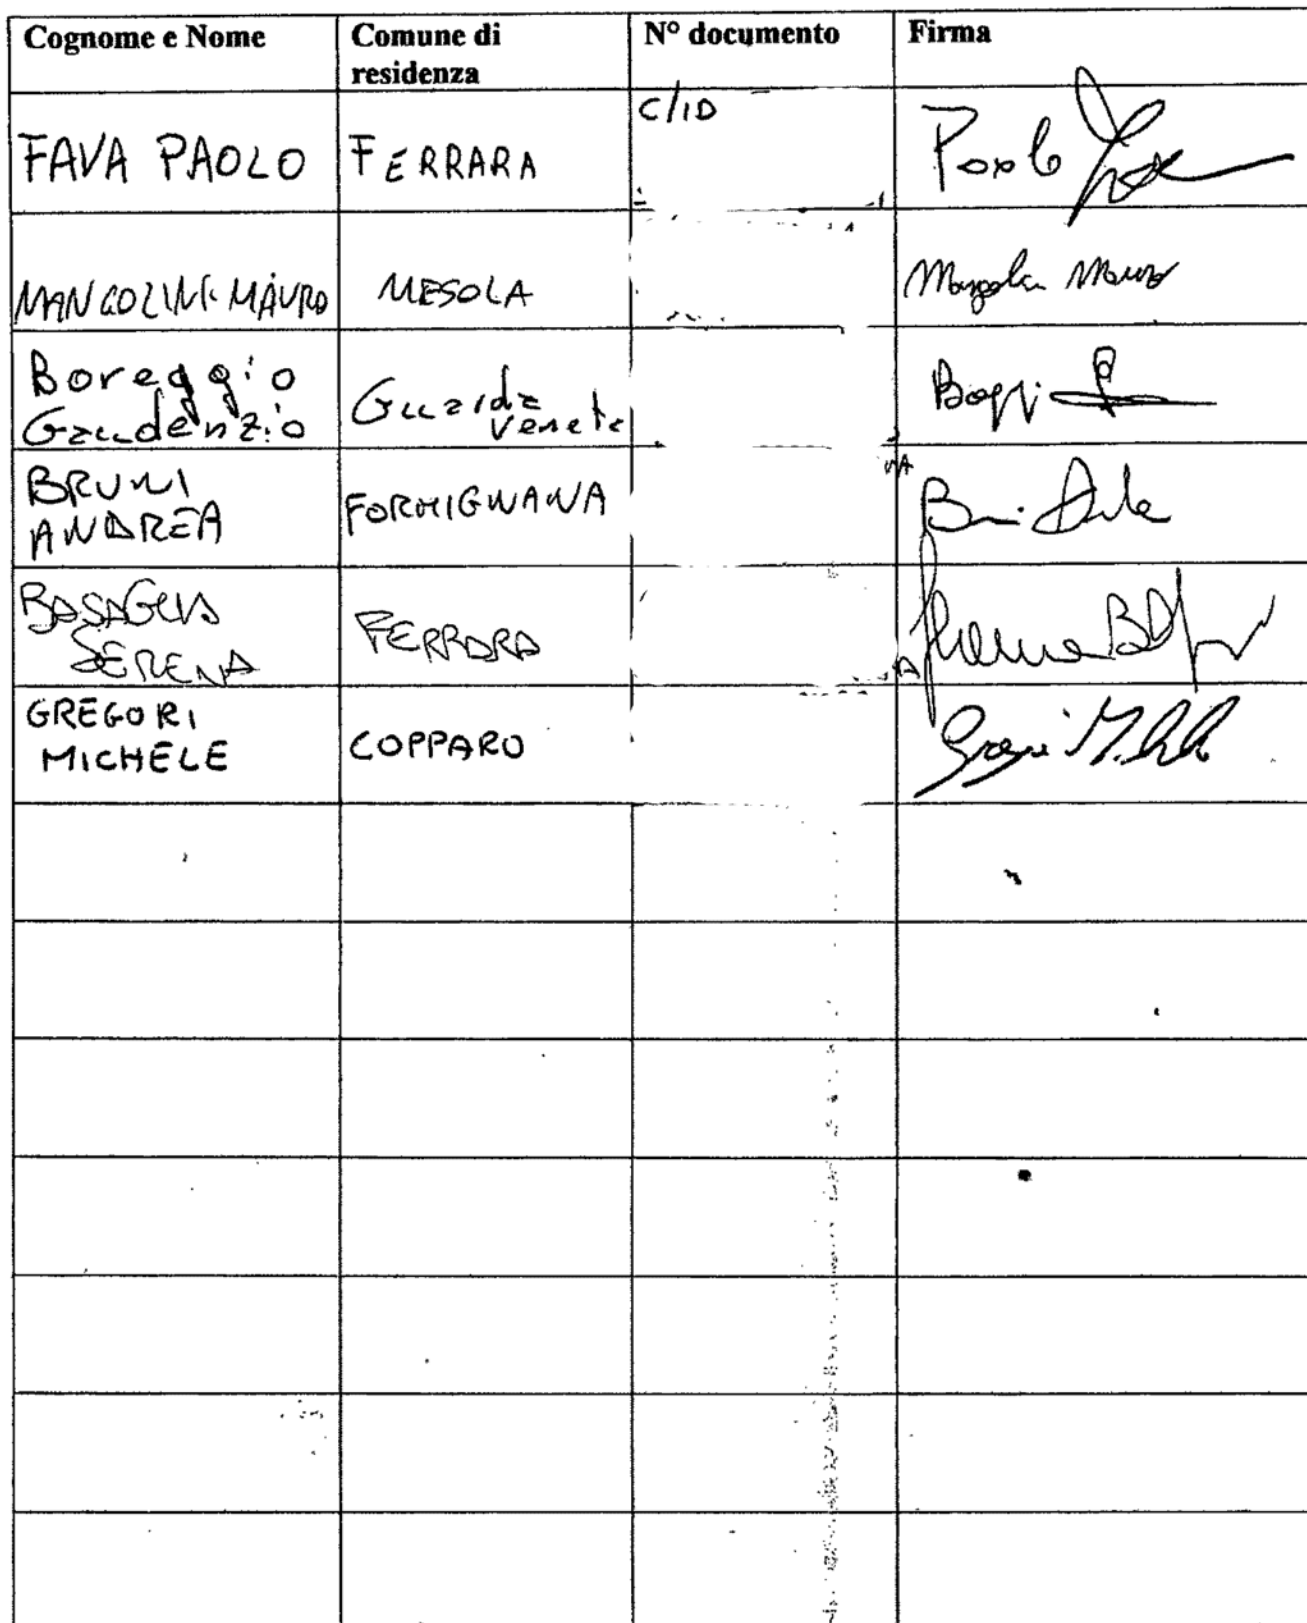 Cognome e Nome Comune di residenza N° documento Firma
FAVA PAOLO FERRARA C/ID Paolo Fava
MANGOLINI MAURO MESOLA Mangolini Mauro
Boreggio Gaudenzio Guarda Veneta
BRUNI ANDREA FORMIGNANA
BASAGLIA SERENA FERRARA
GREGORI MICHELE COPPARO